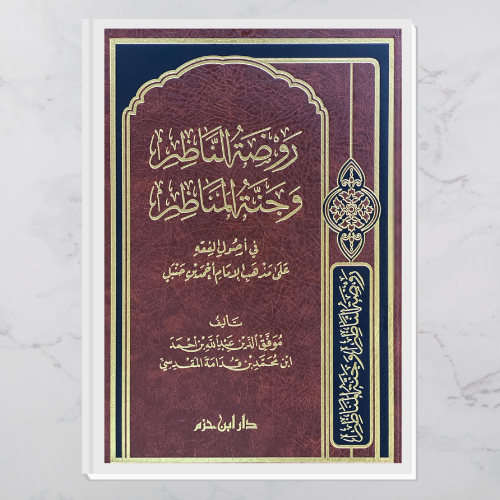 رَوضَةُ النَّاظِر
وَجَنَّةُ المَنَاظِر
في أصُولِ الفِقهِ
عَلى مَذهَبِ الإمَامِ أحْمَد بن حَنْبَل
تَأليفُ
مُوَفَّق الدّين عَبدُ الله بن أحمَد
ابن محمّد بن قُدامَة المَقدسيّ
دار ابن حزم
رَوضَةُ النَّاظِر وَجَنَّةُ المَنَاظِر